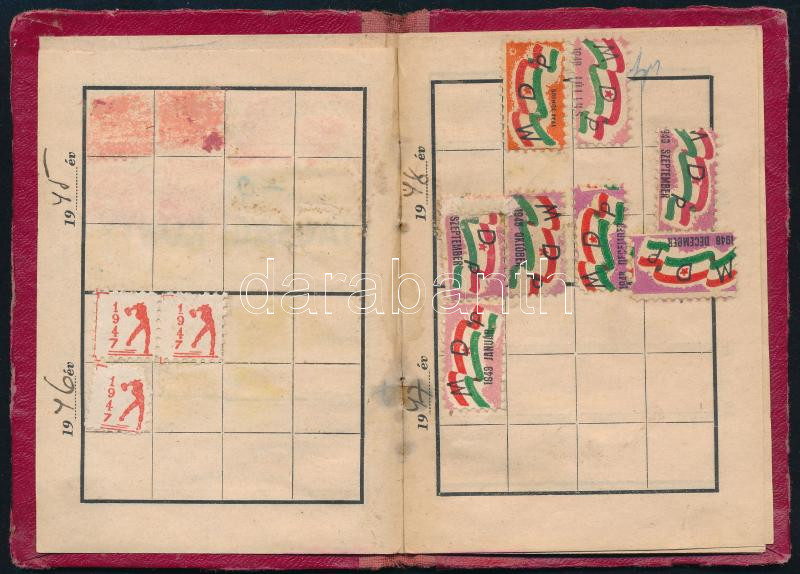 1945 év
1947
1947
1947
1946 év
MDP
MDP
1948
1948 év
MDP
1949 SZEPTEMBER
MDP
SZEPTEMBER
MDP
1948 OKTÓBER
MDP
1948
MDP
1948 DECEMBER
MDP
1949 JANUÁR
19 év
darabanth